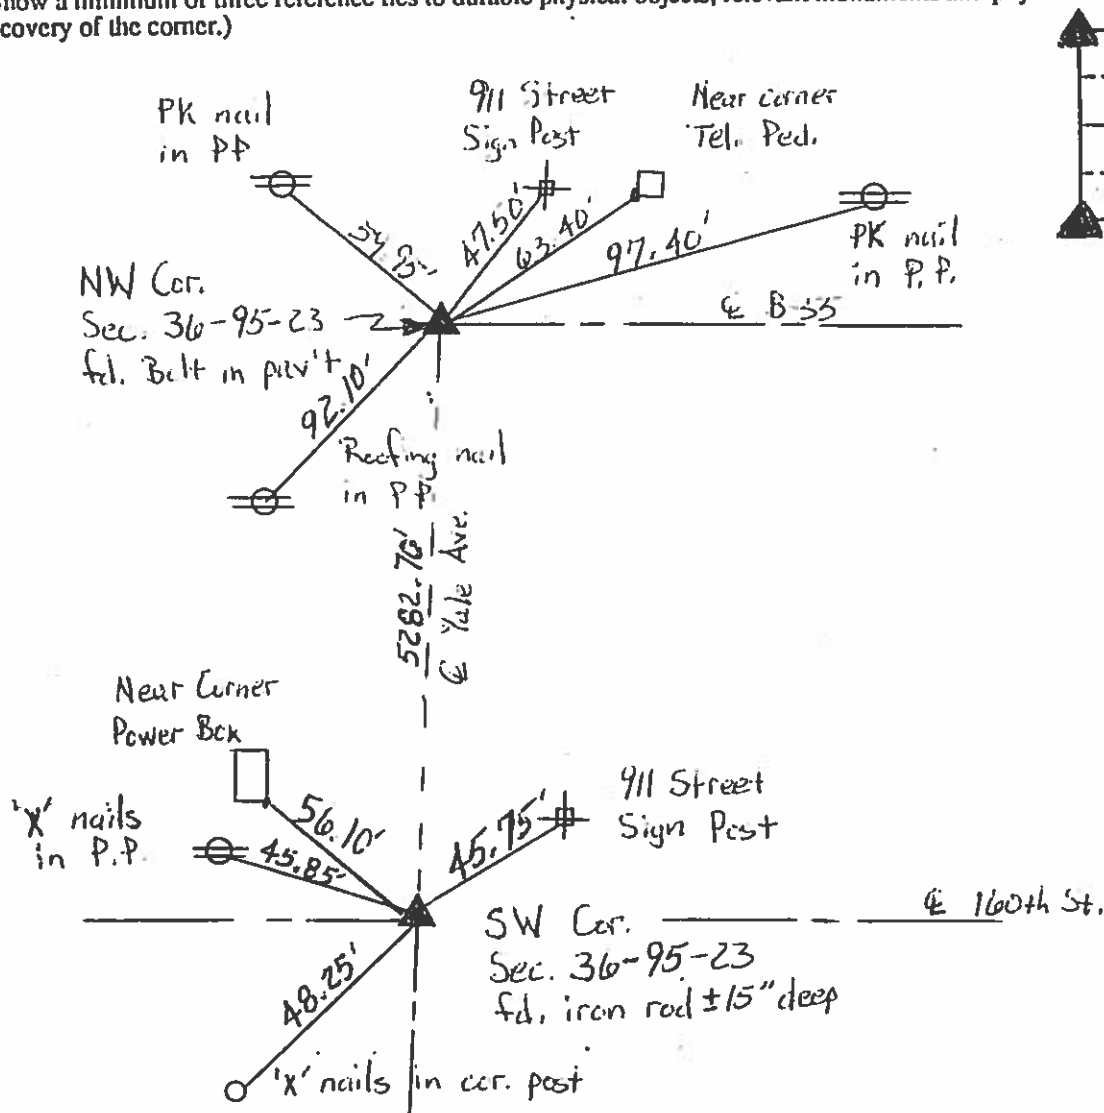 covery of the corner.)
PK nail
in PP
911 Street
Sign Post
Near corner
Tel. Ped.
47.50'
63.40'
97.40'
PK nail
in P.P.
NW Cor.
Sec. 36-95-23
fd. Bolt in pav't
℄ B-55
92.10'
Roofing nail
in P.P.
5282.76'
℄ Yale Ave.
Near Corner
Power Box
'X' nails
in P.P.
56.10'
45.85'
45.75'
911 Street
Sign Post
℄ 160th St.
SW Cor.
Sec. 36-95-23
fd. iron rod ±15" deep
48.25'
'X' nails in cor. post